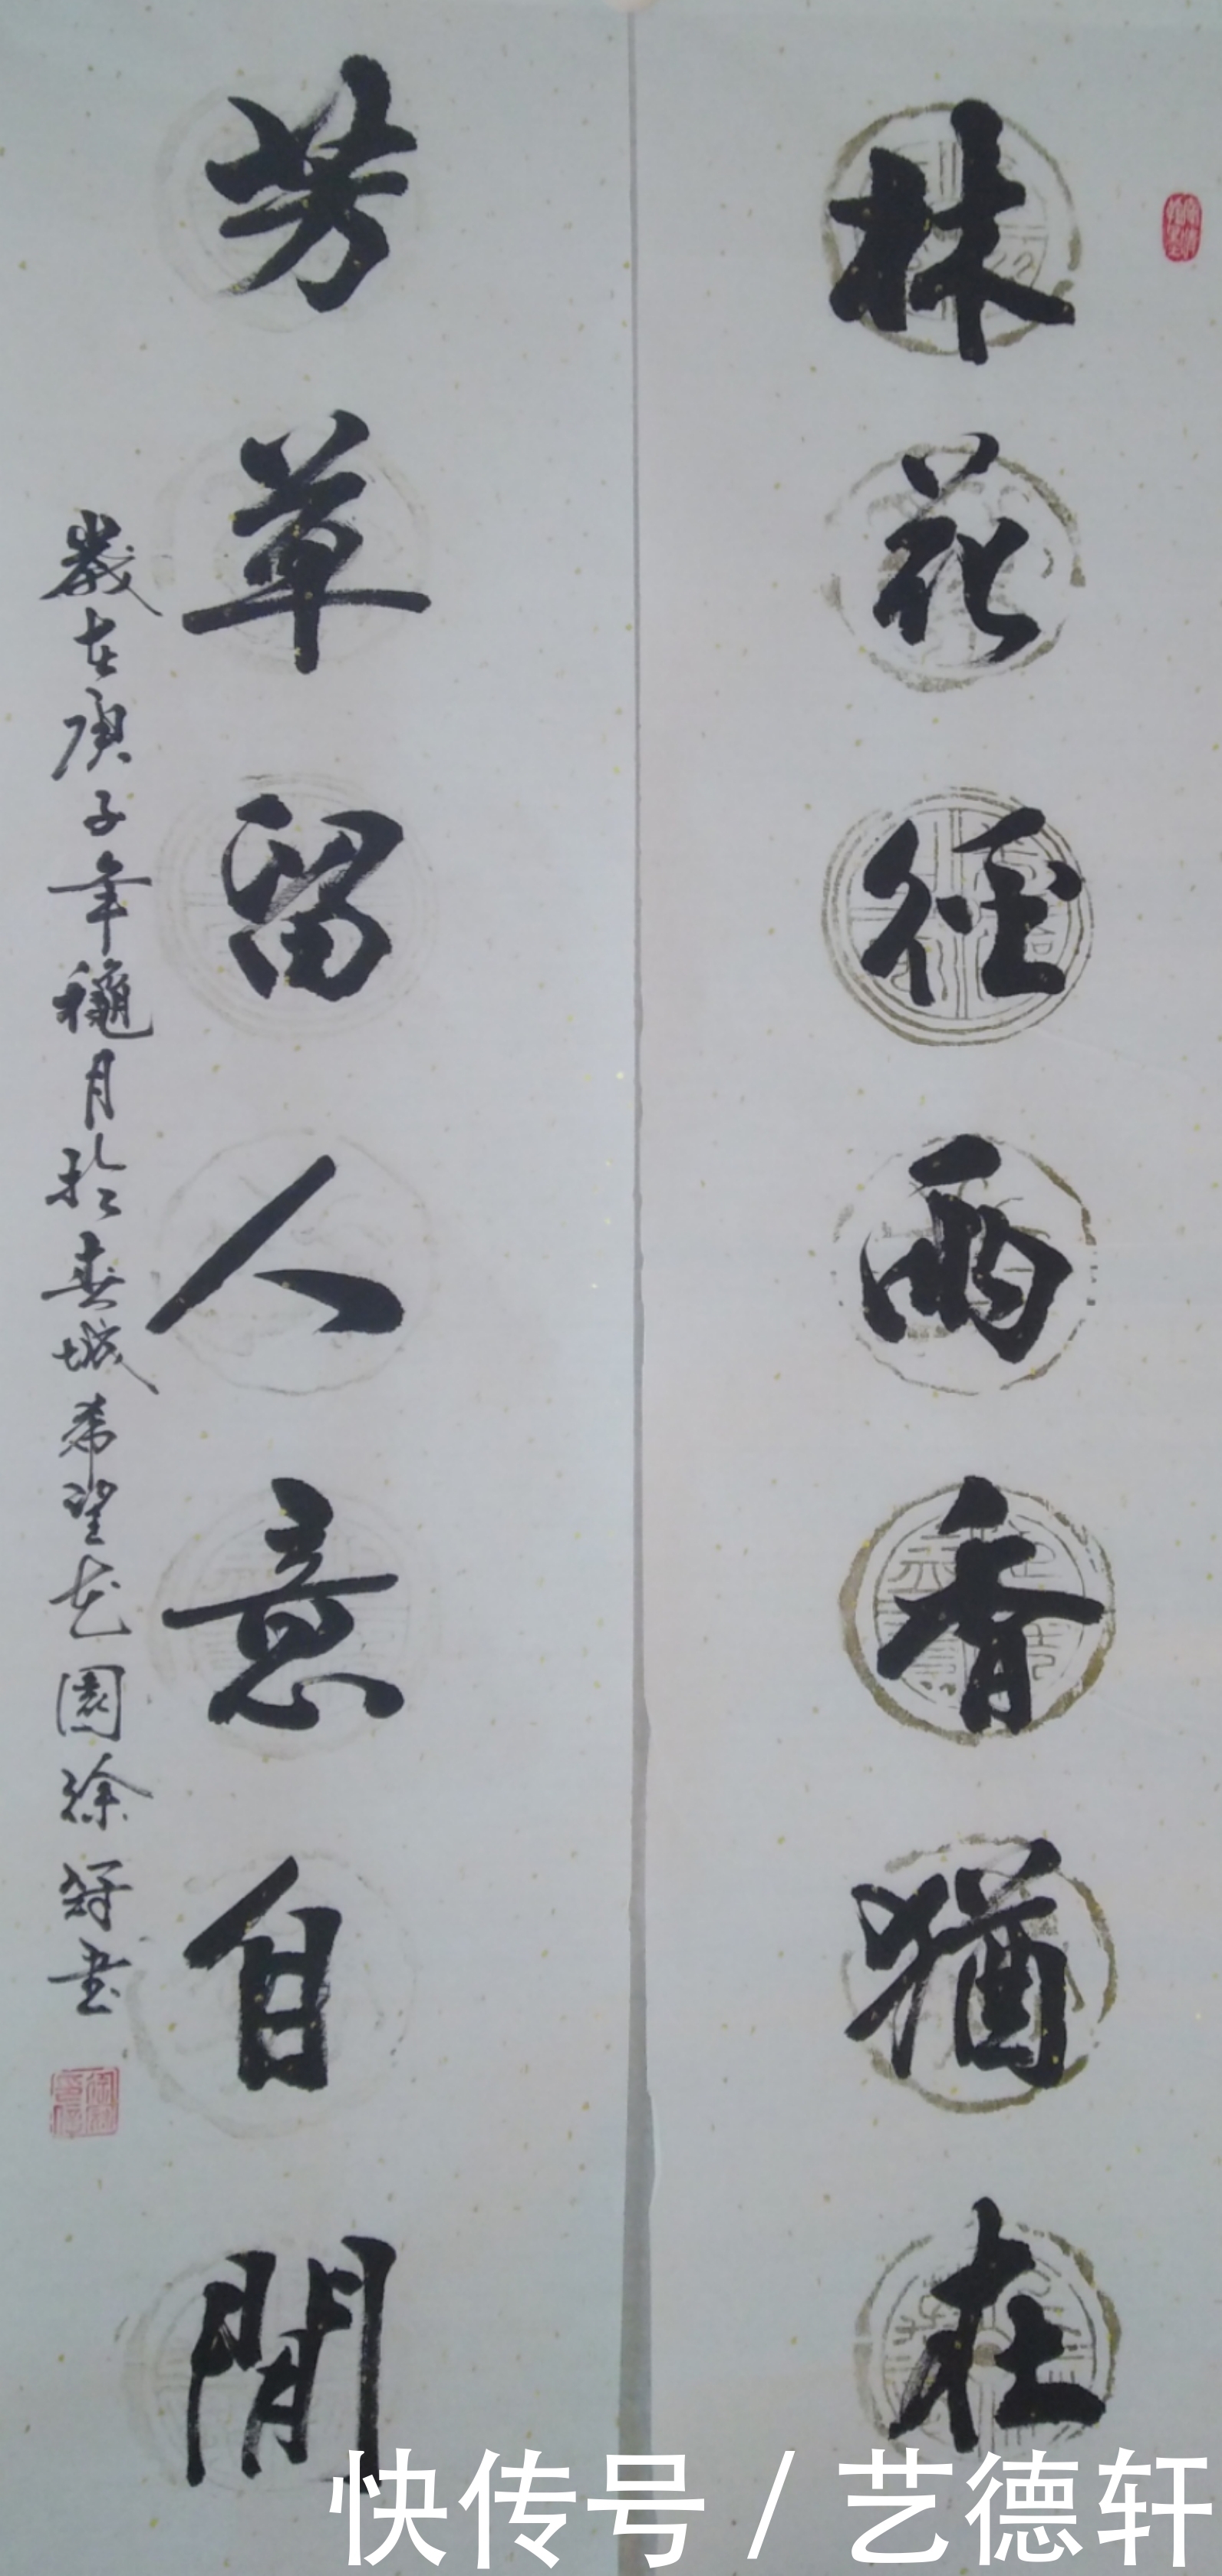 林花经雨香犹在
芳草留人意自閒
歲在庚子年龝月於春城希望花園徐
書
快传号/艺德轩